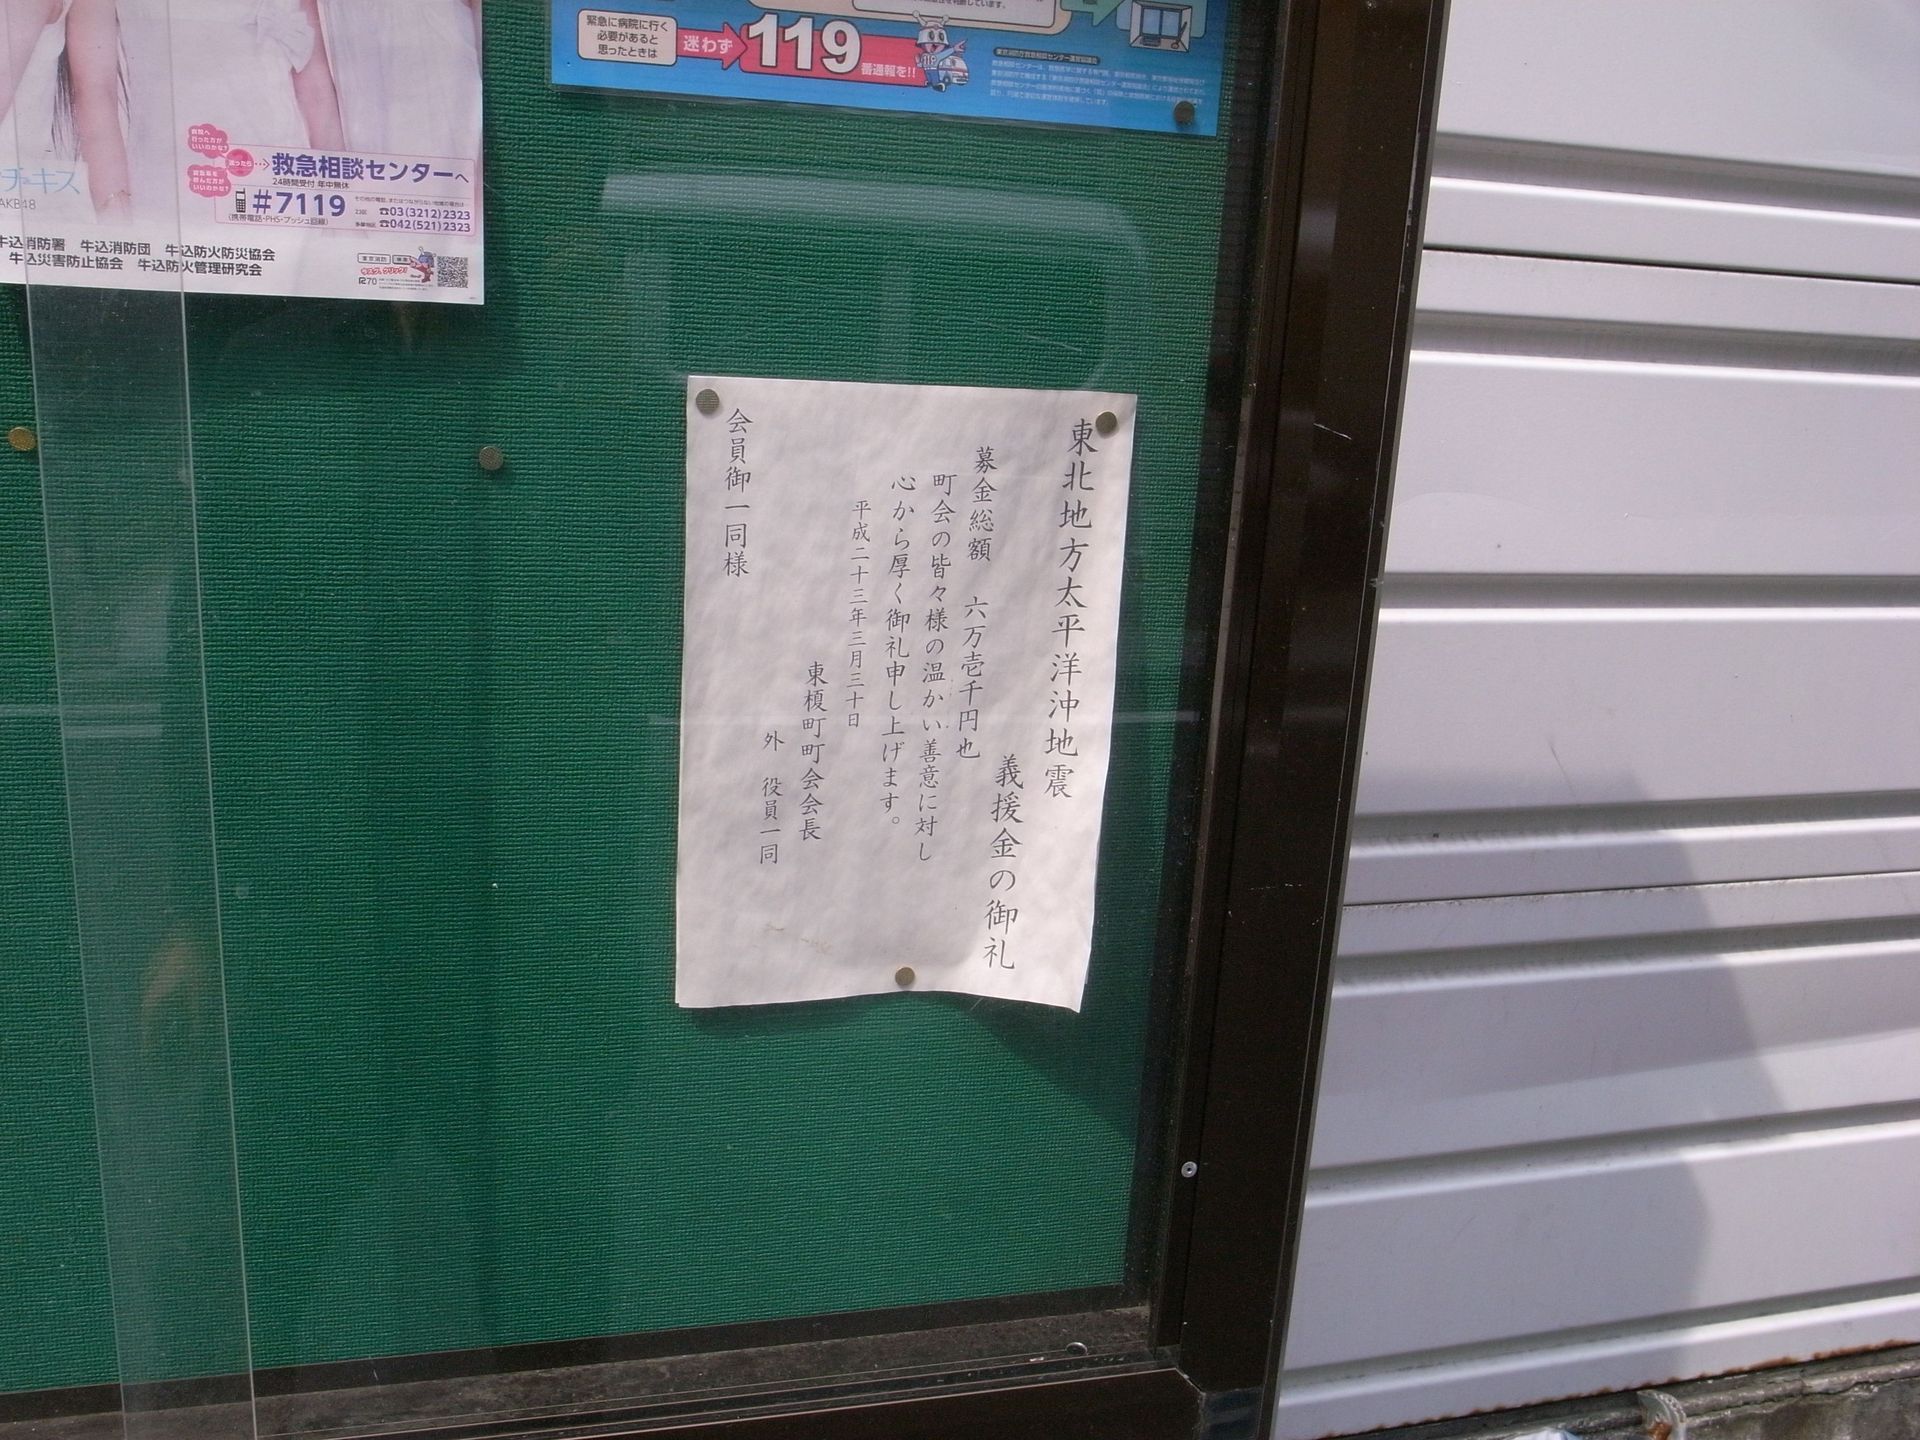 チューキス
AKB48
救急相談センターへ
24時間受付 年中無休
#7119
(携帯電話・PHS・プッシュ回線)
23区 ☎03(3212)2323
多摩地区 ☎042(521)2323
牛込消防署 牛込消防団 牛込防火防災協会
牛込災害防止協会 牛込防火管理研究会
東京消防 検索
今スグ、クリック!
R70
緊急に病院に行く
必要があると
思ったときは
迷わず
119
番通報を!!
東北地方太平洋沖地震
義援金の御礼
募金総額 六万壱千円也
町会の皆々様の温かい善意に対し
心から厚く御礼申し上げます。
平成二十三年三月三十日
東榎町町会会長
外 役員一同
会員御一同様